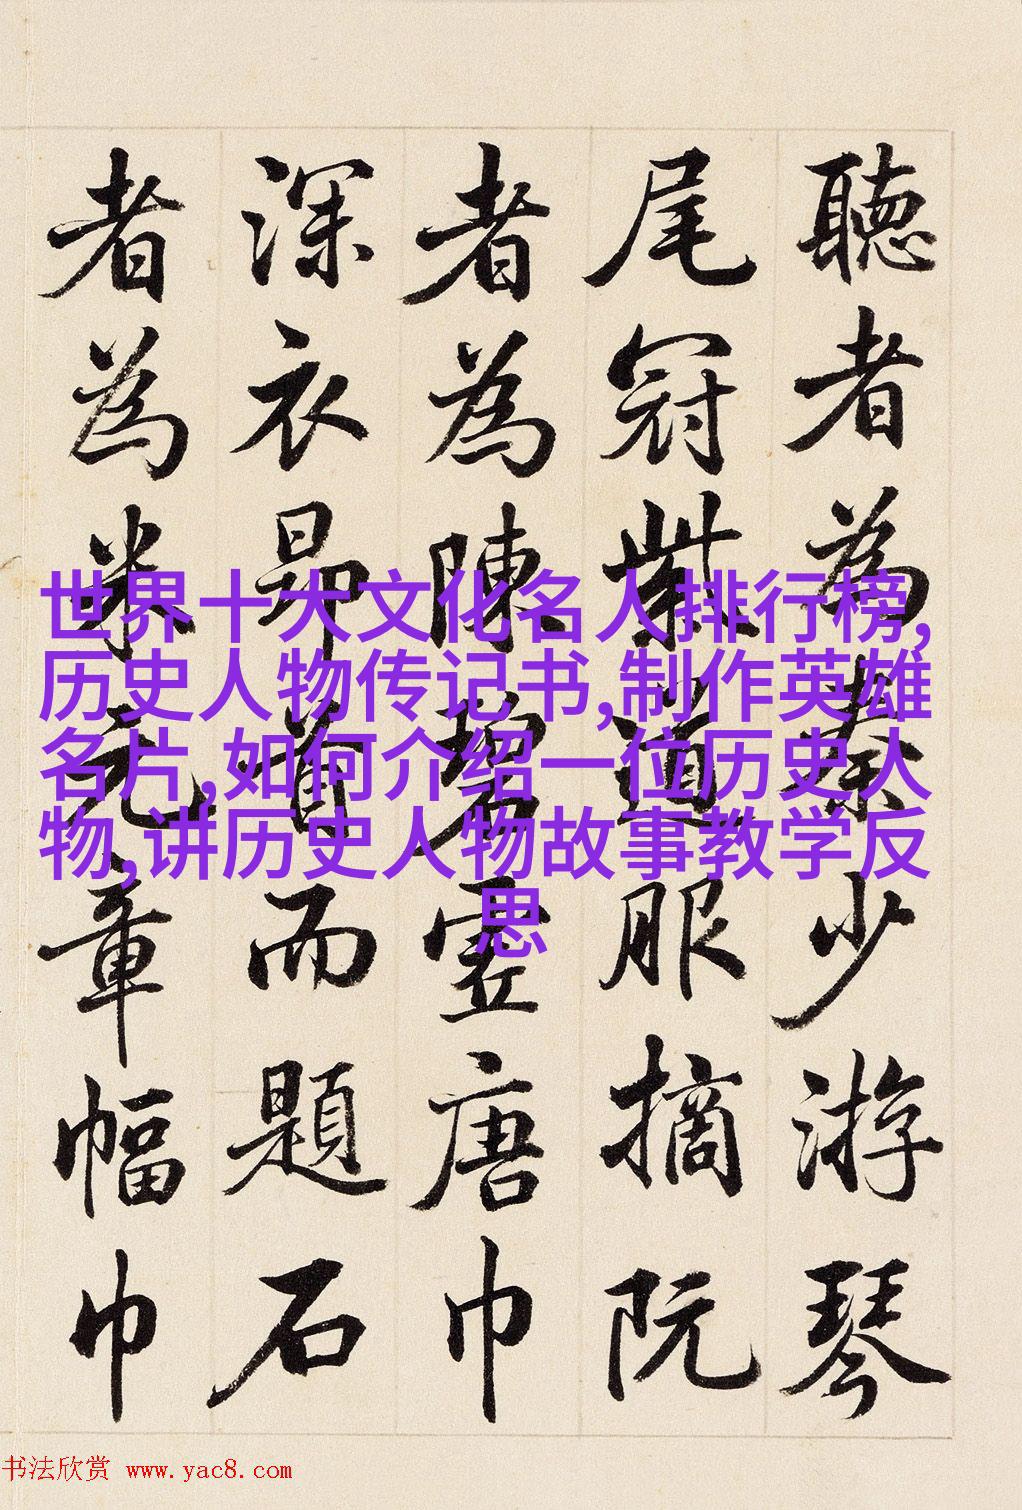 聽者為秦少游琴
尾冠紫道服摘阮
者為陳碧虛唐巾
深衣昻首而題石
者為米元章幅巾
世界十大文化名人排行榜,
历史人物传记书,制作英雄
名片,如何介绍一位历史人
物,讲历史人物故事教学反
思
书法欣赏 www.yac8.com